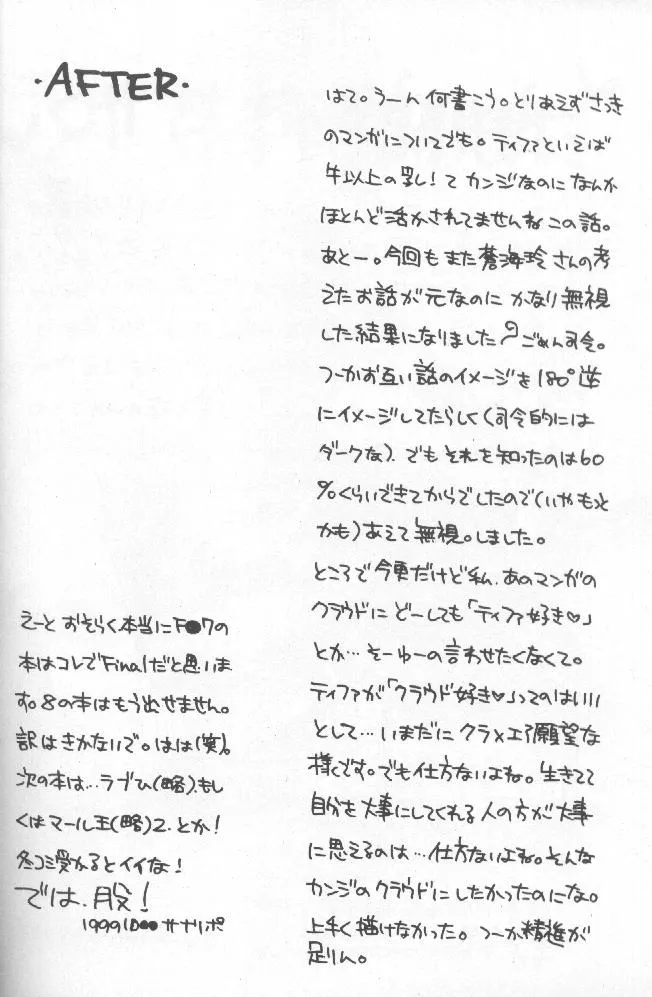 ・AFTER・
はて。うーん何書こう。とりあえずさっき
のマンガについてでも。ティファといえば
牛以上の乳！てカンジなのになんか
ほとんど活かされてませんねこの話。
あとー。今回もまた蒼海玲さんの考
えたお話が元なのにかなり無視
した結果になりましたごめん司令。
つーかお互い話のイメージを180°逆
にイメージしてたらしく（司令的には
ダークな）。でもそれを知ったのは60
％くらいできてからでしたので（いやもっと
かも）あえて無視。しました。
ところで今更だけど私、あのマンガの
クラウドにどーしても「ティファ好き♡」
とか…そーゆーの言わせたくなくて。
ティファが「クラウド好き♡」ってのはいい
として…いまだにクラ×エア願望な
様です。でも仕方ないよね。生きてて
自分を大事にしてくれる人の方が大事
に思えるのは…仕方ないよね。そんな
カンジのクラウドにしたかったのにな。
上手く描けなかった。つーか精進が
足りん。
えーとおそらく本当にF●7の
本はコレでFinalだと思いま
す。8の本はもう出せません。
訳はきかないで。はは（笑）。
次の本は…ラブひ（略）。もし
くはマール王（略）2.とか！
冬コミ受かるとイイな！
では、股！
1999.10●● サナリポ